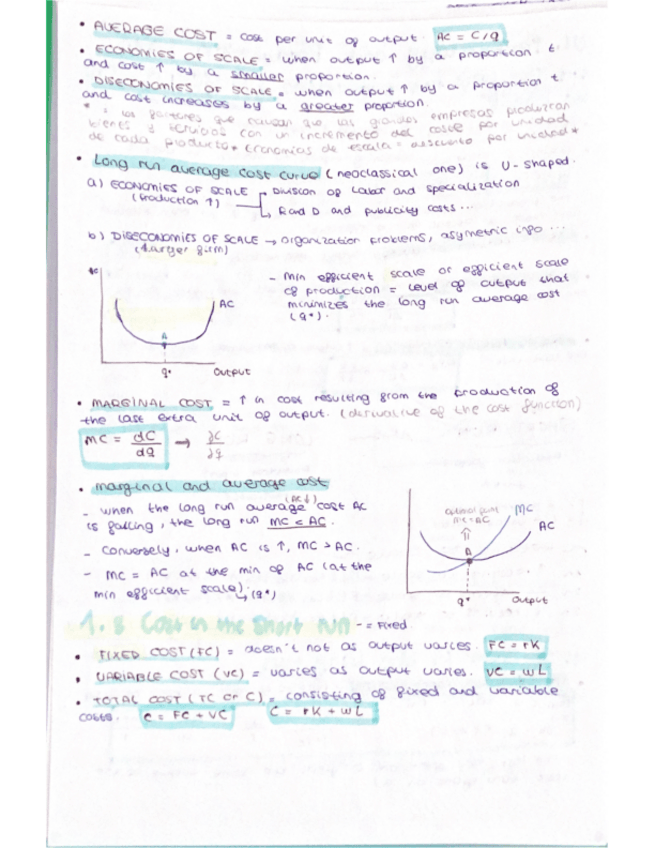 • AVERAGE COST = cost per unit of output. AC = C/q
• ECONOMIES OF SCALE = when output ↑ by a proportion t
and cost ↑ by a smaller proportion.
• DISECONOMIES OF SCALE = when output ↑ by a proportion t
and cost increases by a greater proportion.
* = los factores que causan que las grandes empresas produzcan
bienes y servicios con un incremento del coste por unidad
de cada producto * Economías de escala = descuento por unidad *
• Long run average cost curve (neoclassical one) is U-shaped.
a) ECONOMIES OF SCALE → Division of Labor and specialization
(Production ↑) → R and D and publicity costs ...
b) DISECONOMIES OF SCALE → organization problems, asymetric info ...
(Larger firm)
- Min efficient scale or efficient scale
of production = level of output that
minimizes the long run average cost
(q*).
AC
A
q* Output
• MARGINAL COST = ↑ in cost resulting from the production of
the last extra unit of output. (derivative of the cost function)
MC = dC/dq → ∂C/∂q
• marginal and average cost
- when the long run average (AC↓) cost AC
is falling, the long run MC < AC.
- Conversely, when AC is ↑, MC > AC.
- MC = AC at the min of AC (at the
min efficient scale). ↳ (q*)
optimal point
MC = AC
MC
AC
A
q* Output
1.8 Cost in the Short run - = Fixed
• FIXED COST (FC) = doesn't not as output varies. FC = rK
• VARIABLE COST (VC) = varies as output varies. VC = wL
• TOTAL COST (TC or C) = consisting of fixed and variable
costs. C = FC + VC C = rK + wL